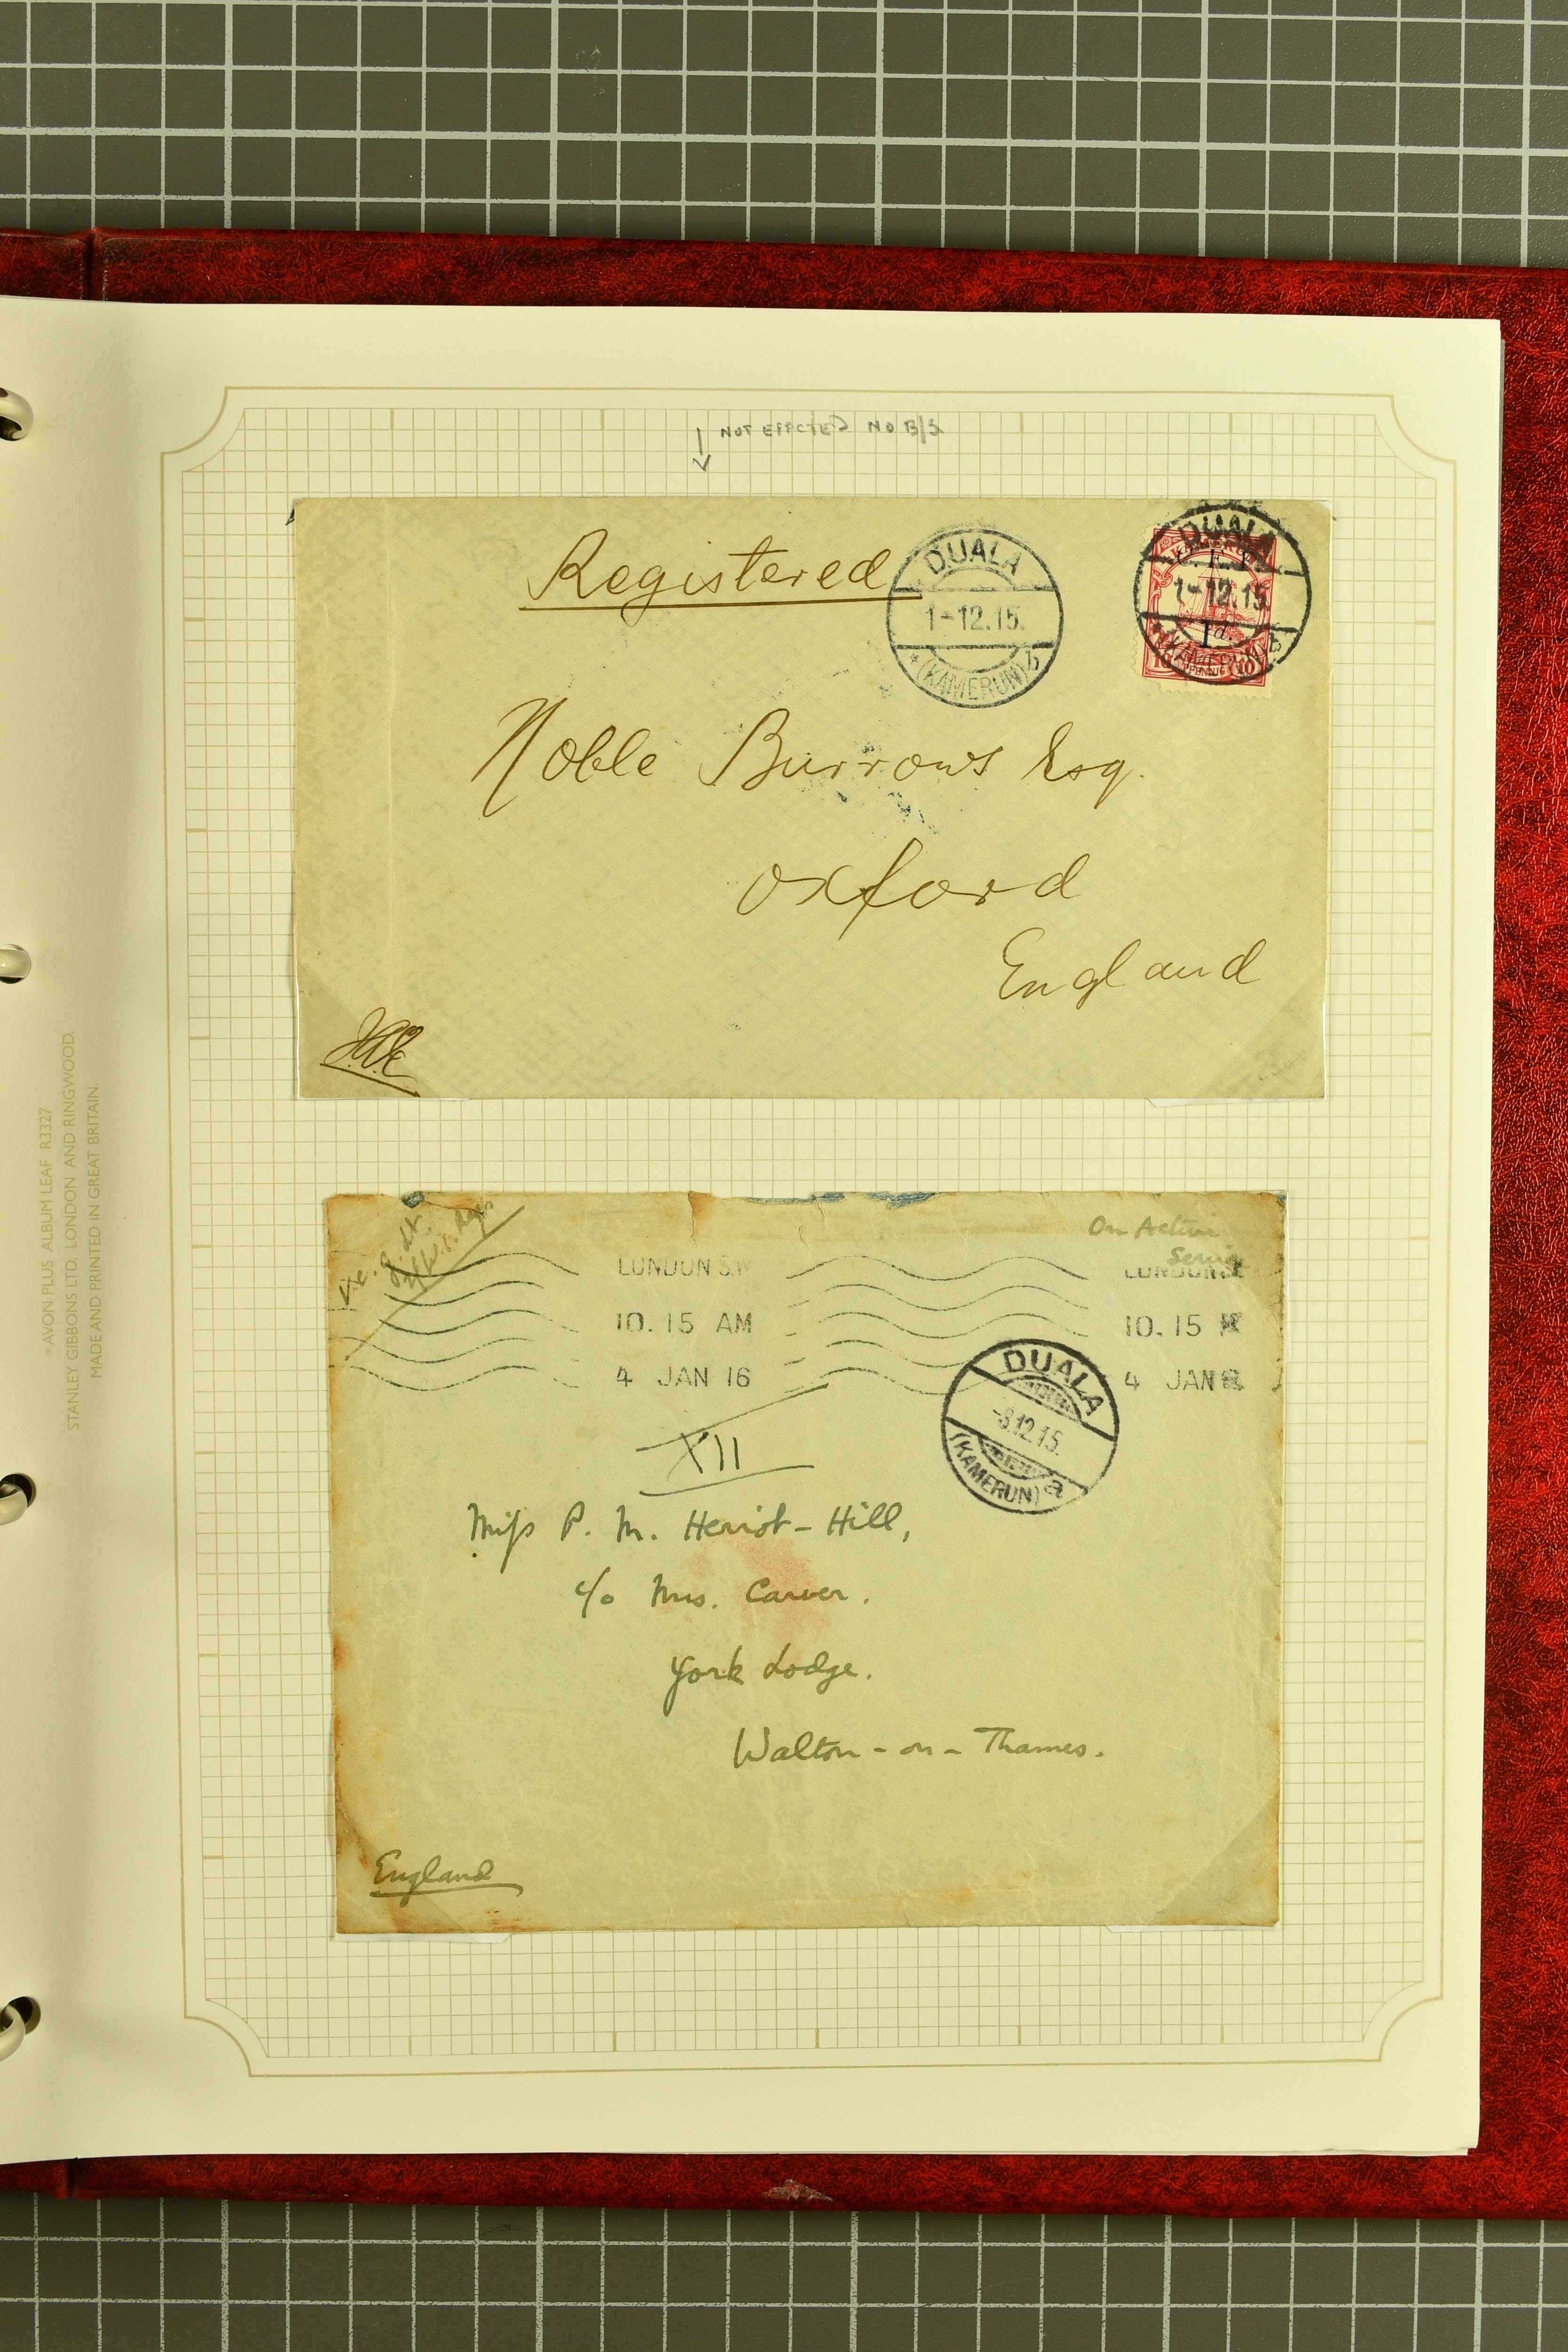 NOT EFFCTED NO B/S
Registered
DUALA
1-12.15.
* (KAMERUN) b
DUALA
KAMERUN
C. E. F.
1-12.15.
1d.
* (KAMERUN) b
10 PFENNIG 10
Noble Burrows Esq.
Oxford
England
On Active
Service
LONDON S.W
10. 15 AM
4 JAN 16
10. 15
4 JAN
DUALA
-8.12.15.
(KAMERUN) a
XII
Miss P. M. Herriot-Hill,
c/o Mrs. Carver.
York Lodge.
Walton-on-Thames.
England
AVON PLUS ALBUM LEAF R3327
STANLEY GIBBONS LTD. LONDON AND RINGWOOD.
MADE AND PRINTED IN GREAT BRITAIN.